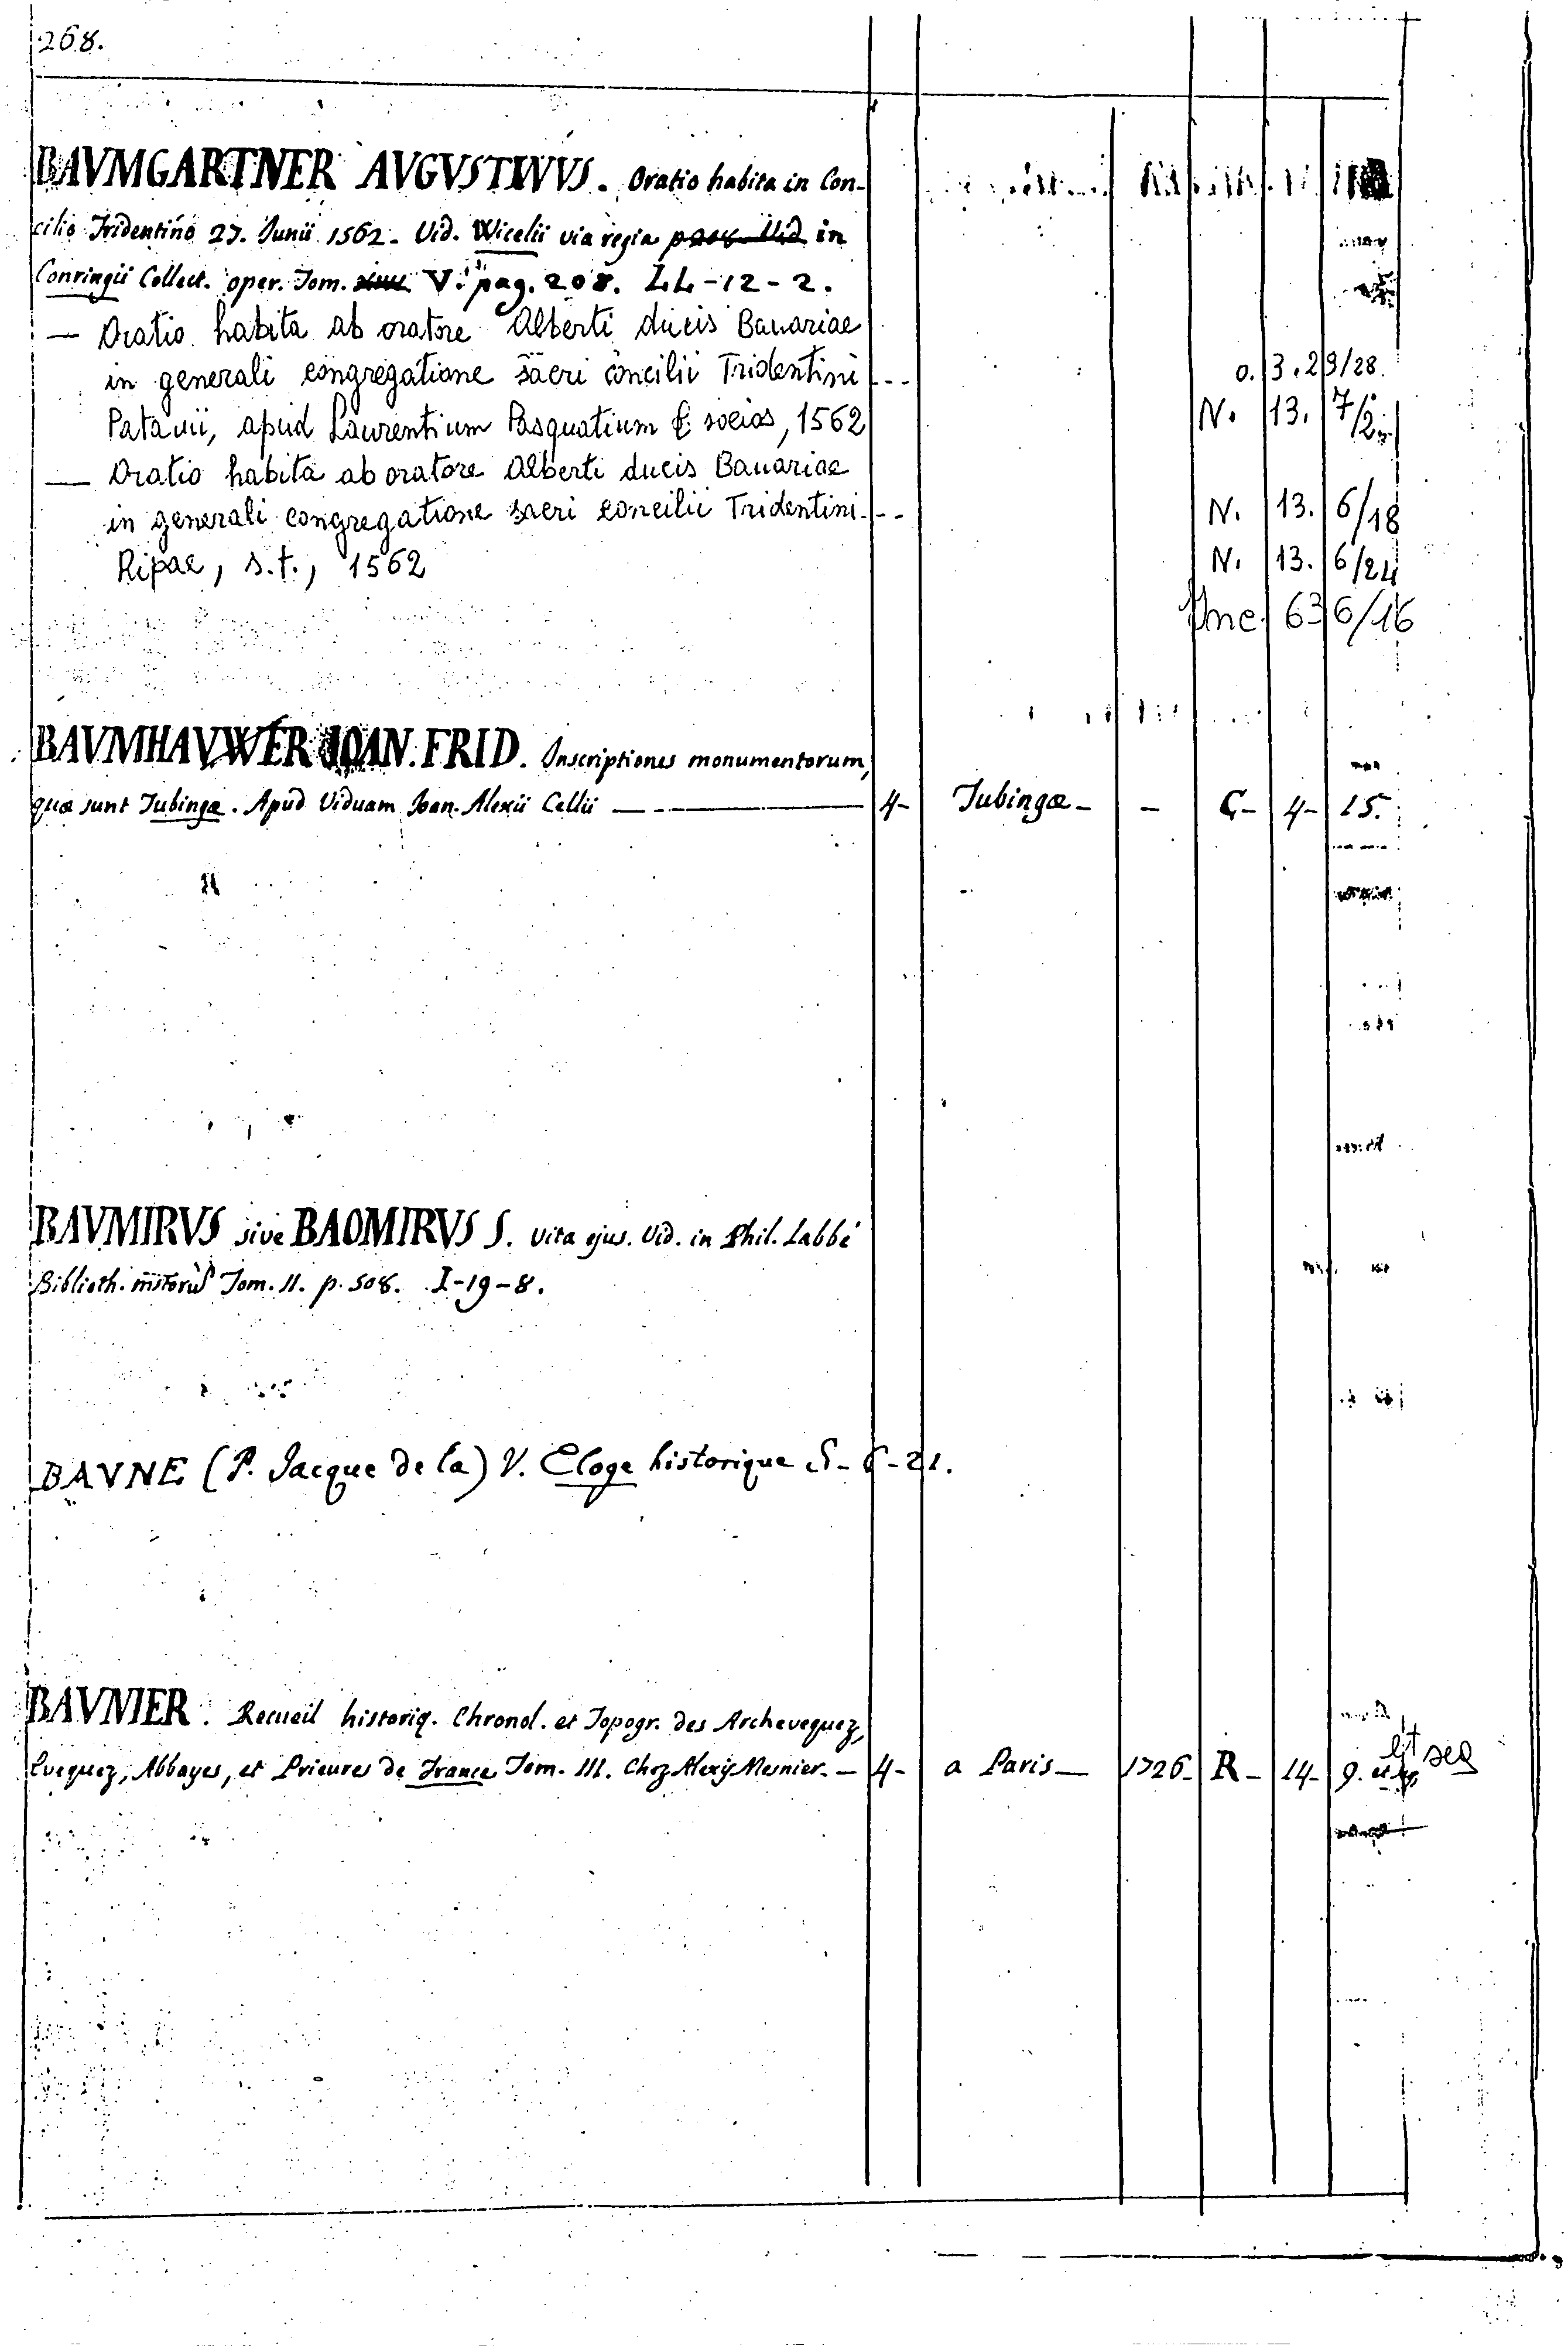 268.
BAVMGARTNER AVGVSTINVS. Oratio habita in Con-
cilio Tridentino 27. Junii 1562. Vid. Wicelii via regia in
Conringii Collect. oper. Tom. V. pag. 208. LL-12-2.
— Oratio habita ab oratore Alberti ducis Bauariae
in generali congregatione sacri concilii Tridentini ---
o. 3. 29/28.
Patauii, apud Laurentium Pasquatium & socios, 1562
N. 13. 7/2
— Oratio habita ab oratore Alberti ducis Bauariae
in generali congregatione sacri concilii Tridentini. --
N. 13. 6/18
Ripae, s.t., 1562
N. 13. 6/24
Inc. 63 6/16
BAVMHAVWER JOAN. FRID. Inscriptiones monumentorum,
quæ sunt Tubingæ. Apud Viduam Joan. Alexii Cellii — 4- Tubingæ - - C- 4- 15.
BAVMIRVS sive BAOMIRVS S. Vita ejus. Vid. in Phil. Labbé
Biblioth. Tom. II. p. 508. I-19-8.
BAVNE (P. Jacque de la) V. Eloge historique S-6-21.
BAVNIER. Recueil historiq. Chronol. et Topogr. des Archevequez,
Evequez, Abbayes, et Prieures de France Tom. III. Chez Alexij Mesnier. — 4- a Paris — 1726- R- 14- 9. et seq